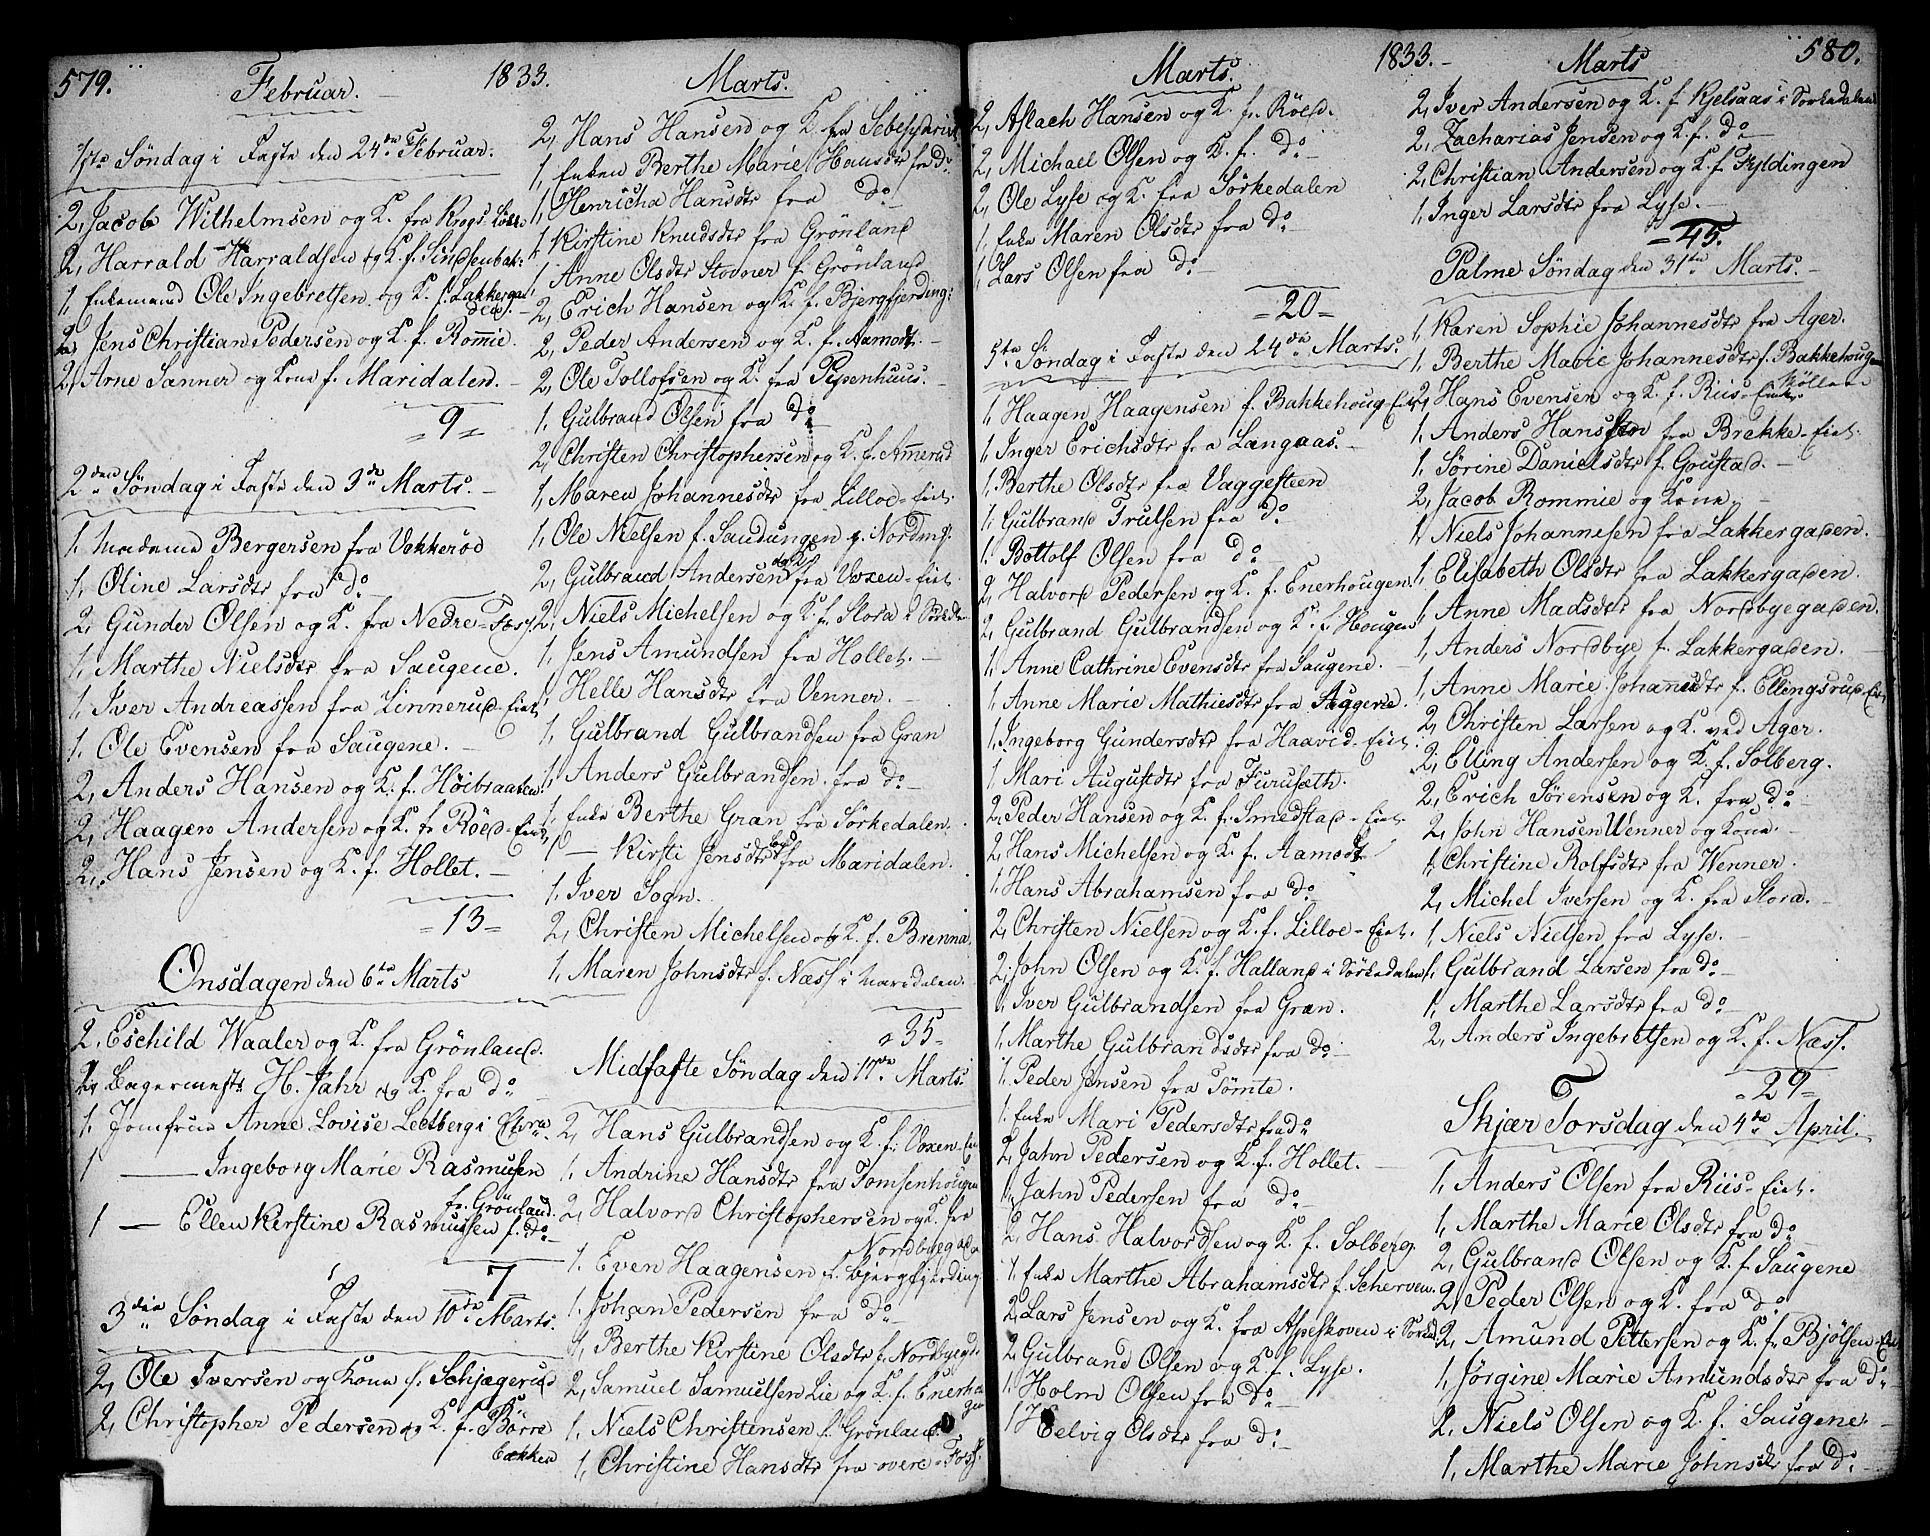 579.
Februar.
1833.
1ste Söndag i Faste den 24de Februar.
2, Jacob Wilhelmsen og K. fra Krogs
2, Harrald Harraldsen og K. f. Sinsenbak:
1, Enkemand Ole Ingebretsen og K. f. Lakkerga-
den.
2, Jens Christian Pedersen og K. f. Rommie.
2, Arne Sanner og Kone f. Maridalen.
= 9 =
2den Söndag i Faste den 3de Marts.
1, Madame Bergersen fra Vækkeröe
1, Oline Larsdtr fra do
2, Gunder Olsen og K. fra Nedre-Foss.
1, Marthe Nielsdtr fra Saugene.
1, Iver Andreassen fra Linnerud-Eiet.
1, Ole Evensen fra Saugene.
2, Anders Hansen og K. f. Höibraaten.
2, Haagen Andersen og K. fr Röed-Eiet.
2, Hans Jensen og K. f. Hollet.
= 13 =
Onsdagen den 6te Marts
2, Eschild Waaler og K. fra Grönland.
2, Lagermestr H. Jahr og K. fra do
1, Jomfrue Anne Lovise Leetberg i
1 — Ingeborg Marie Rasmusen
fr. Grönland.
1 — Ellen Kirstine Rasmussen f. do
7
3die Söndag i Faste den 10de Marts.
2, Ole Iversen og Kone f. Schjøgerud
2, Christopher Pedersen og K. f. Börre
bækken
Marts.
2, Hans Hansen og K. fra
1, Enken Berthe Marie Hansdtr fra do
1, Henricha Hansdtr fra do
1, Kirstine Knudsdtr fra Grönland
1, Anne Olsdtr Stovner f. Grönland
2, Erich Hansen og K. f. Bjergfjerding:
2, Peder Andersen og K. f. Aamodt.
2, Ole Tollofsen og K. fra Pipenhuus.
1, Gulbrand Olsen fra do
2, Christen Christophersen og K. f. Ammerud
1, Maren Johannesdtr fra Lilloe-Eiet.
1, Ole Nielsen f. Saudungen p. Nordm.
2, Gulbrand Andersen og K. fra Voxen-Eiet.
2, Niels Michelsen og K. f. Slora i Sörked.
1, Jens Amundsen fra Hollet.
1, Helle Hansdtr fra Venner.
1, Gulbrand Gulbrandsen fra Gran
1, Anders Gulbrandsen fra do
1, Enke Berthe Gran fra Sörkedalen.
1, — Kirsti Jensdtr fra Maridalen.
1, Iver Sogn.
2, Christen Michelsen og K. f. Brenna.
1, Maren Johnsdtr f. Næss i Maridalen.
= 35 =
Midfaste Söndag den 17de Marts.
2, Hans Gulbrandsen og K. f. Voxen-Eiet
1, Andrine Hansdtr fra Tomsenhougen
2, Halvord Christophersen og K. fra
Nordbyegaden
1, Even Haagensen f. Bjergfjerding.
1, Johan Pedersen fra do
1, Berthe Kirstine Olsdtr f. Nordbyegde
2, Samuel Samuelsen Lie og K. f. Enerhou
gen
1, Niels Christensen f. Grönland
1, Christine Hansdtr fra overe-Foss.
Marts.
2, Aslach Hansen og K. fr. Röed.
2, Michael Olsen og K. f. do
2, Ole Lyse og K. fra Sörkedalen
1, Enke Maren Olsdtr fra do
1, Lars Olsen fra do
= 20 =
5te Söndag i Faste den 24de Marts.
1, Haagen Haagensen f. Bakkehoug Eiet
1, Inger Erichsdtr fra Langaas.
1, Berthe Olsdtr fra Vaggesteen
1, Gulbrand Trulsen fra do
1, Bottolf Olsen fra do
2, Halvord Pedersen og K. f. Enerhougen.
2, Gulbrand Gulbrandsen og K. f. Hougen
1, Anne Cathrine Evensdtr fra Saugene.
1, Anne Marie Mathiesdtr fra Aaggerie.
1, Ingeborg Gundersdtr fra Haavid-Eiet.
1, Mari Augustdtr fra Furusæth.
2, Peder Hansen og K. f. Smedstad-Eiet.
2, Hans Michelsen og K. f. Aamodt
1, Hans Abrahamsen fra do
2, Christen Nielsen og K. f. Lilloe-Eiet.
2, John Olsen og K. f. Halland i Sörkedalen
1, Iver Gulbrandsen fra Gran.
1, Marthe Gulbrandsdtr fra do
1, Peder Jensen fra Tömte.
1, Enke Mari Pedersdtr fra do
2, Jahn Pedersen og K. f. Hollet.
1, Jahn Pedersen fra do
2, Hans Halvordsen og K. f. Solberg.
1, Enke Marthe Abrahamsdtr f. Scherven.
2, Lars Jensen og K. fra Aspeskoven i Sörked.
2, Gulbrand Olsen og K. f. Lyse.
1, Holm Olsen fra do
1, Helvig Olsdtr fra do
1833.
Marts
580.
2, Iver Andersen og K. f. Kjelsaas i Sörkedalen
2, Zacharias Jensen og K. f. do
2, Christian Andersen og K. f. Fyldingen
1, Inger Larsdtr fra Lyse.
= 45.
Palme Söndag den 31te Marts.
1, Karen Sophie Johannesdtr fra Ager.
1, Berthe Marie Johannesdtr f. Bakkehougen
2, Hans Evensen og K. f. Riis-Eiet.
1, Anders Hansen fra Brekke-Eiet.
1, Sörine Danielsdtr f. Goustad.
2, Jacob Rommie og Kone.
1, Niels Johannesen fra Lakkergaden.
1, Elisabeth Olsdtr fra Lakkergaden.
1, Anne Madsdtr fra Nordbyegaden.
1, Anders Nordbye f. Lakkergaden.
1, Anne Marie Johannesdtr f. Ellingsrud-Eiet
2, Christen Larsen og K. ved Ager.
2, Elling Andersen og K. f. Solberg.
2, Erich Sörensen og K. fra do
2, John Hansen Wenner og Kone.
1, Christine Rolfsdtr fra Wenner.
2, Michel Iversen og K. fra Slora.
1, Niels Nielsen fra Lyse.
1, Gulbrand Larsen fra do
1, Marthe Larsdtr fra do
2, Anders Ingebretsen og K. f. Næss.
= 29 =
Skjær Torsdag den 4de April.
1, Anders Olsen fra Riis-Eiet.
1, Marthe Marie Olsdtr fra do
2, Gulbrand Olsen og K. f. Saugene
2, Peder Olsen og K. fra do
2, Amund Pettersen og K. fr. Bjölsen-Eiet
1, Jörgine Marie Amundsdtr fra do
2, Niels Olsen og K. f. Saugene.
1, Marthe Marie Johnsdtr fra do